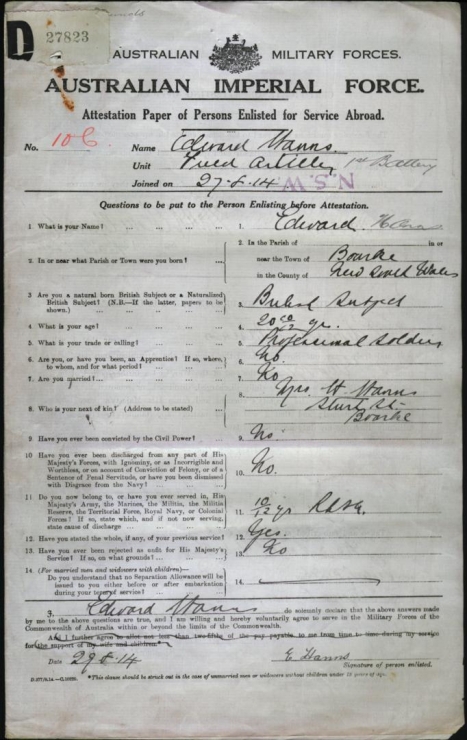 D 27823
AUSTRALIAN MILITARY FORCES.
AUSTRALIAN IMPERIAL FORCE.
Attestation Paper of Persons Enlisted for Service Abroad.
No. 106 Name Edward Hanns
Unit Field Artillery 1st Battery
Joined on 27-8-14 N.S.W
Questions to be put to the Person Enlisting before Attestation.
1 What is your Name? ... ... ... ... 1. Edward
2. In or near what Parish or Town were you born? ... 2. In the Parish of in or
near the Town of Bourke
in the County of New South Wales
3 Are you a natural born British Subject or a Naturalized
British Subject? (N.B.—If the latter, papers to be
shown.) ... ... ... ... 3. British Subject
4. What is your age? ... ... ... ... 4. 20 yr.
5. What is your trade or calling? ... ... ... 5. Professional Soldier
6. Are you, or have you been, an Apprentice? If so, where,
to whom, and for what period? ... ... ... 6. No.
7. Are you married? ... ... ... ... 7. No
8. Who is your next of kin? (Address to be stated) ... 8. Mrs. H Hanns
Sturt St.
Bourke
9. Have you ever been convicted by the Civil Power? ... 9. No.
10 Have you ever been discharged from any part of His
Majesty's Forces, with Ignominy, or as Incorrigible and
Worthless, or on account of Conviction of Felony, or of a
Sentence of Penal Servitude, or have you been dismissed
with Disgrace from the Navy? ... ... ... 10. No.
11. Do you now belong to, or have you ever served in, His
Majesty's Army, the Marines, the Militia, the Militia
Reserve, the Territorial Force, Royal Navy, or Colonial
Forces? If so, state which, and if not now serving,
state cause of discharge ... ... ... 11. 10/12 yr
12. Have you stated the whole, if any, of your previous service? 12. Yes.
13. Have you ever been rejected as unfit for His Majesty's
Service? If so, on what grounds? ... ... 13. No
14. (For married men and widowers with children)—
Do you understand that no Separation Allowance will be
issued to you either before or after embarkation
during your term of service? ... ... ... 14.
3. Edward Hanns do solemnly declare that the above answers made
by me to the above questions are true, and I am willing and hereby voluntarily agree to serve in the Military Forces of the
Commonwealth of Australia within or beyond the limits of the Commonwealth.
And I further agree to allot not less than two-fifths of the pay payable to me from time to time during my service
for the support of my wife and children.*
Date 29-8-14 E Hanns
Signature of person enlisted.
*This clause should be struck out in the case of unmarried men or widowers without children under 18 years of age.